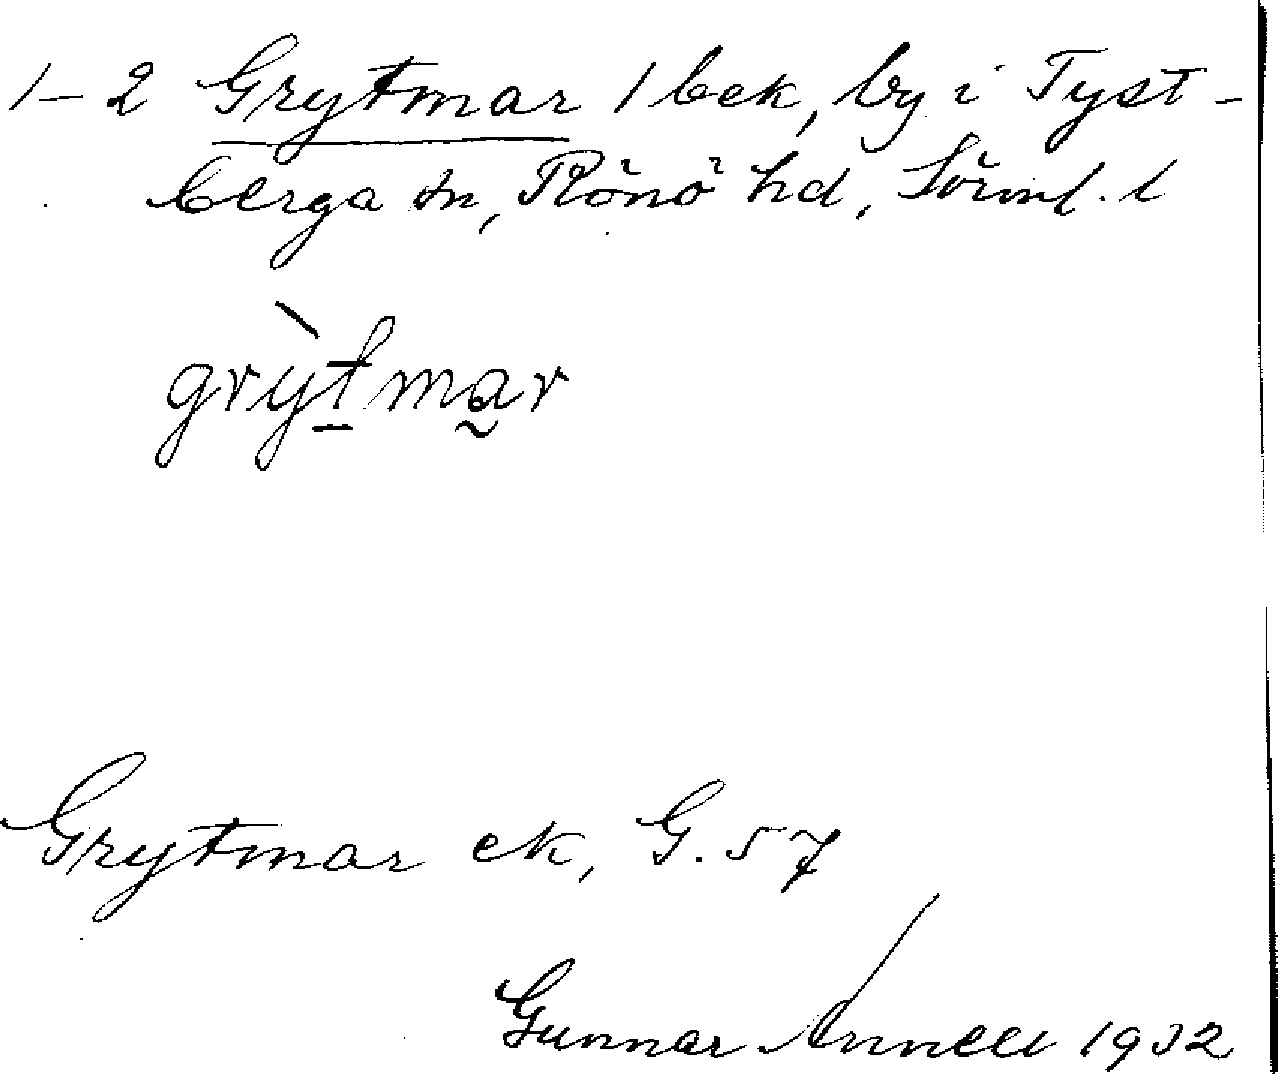 1-2 Grytmar 1 bek, by i Tyst-
berga sn, Rönö hd, Sörml. l
grỳtmar
Grytmar ek, G. 57
Gunnar Annell 1932